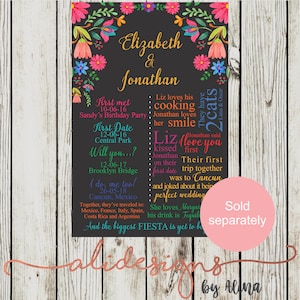 Elizabeth
&
Jonathan
First met
10-06-16
Sandy's Birthday Party
First Date
12-06-16
Central Park
Will you...?
12-06-17
Brooklyn Bridge
I do, me too!
26-05-18
Cancun
Together, they've traveled to:
Mexico, France, Italy, Spain,
Costa Rica and Argentina
Liz loves his
cooking
Jonathan loves
her smile
They have
2 cats
Liz
kissed
Jonathan
on their
first date
Jonathan said
I love you
first
Their first
trip together
was to Cancun
and joked about it being
perfect wedding
She loves
his drink is
And the biggest FIESTA is yet to be
Sold
separately
alidesigns
by Alina